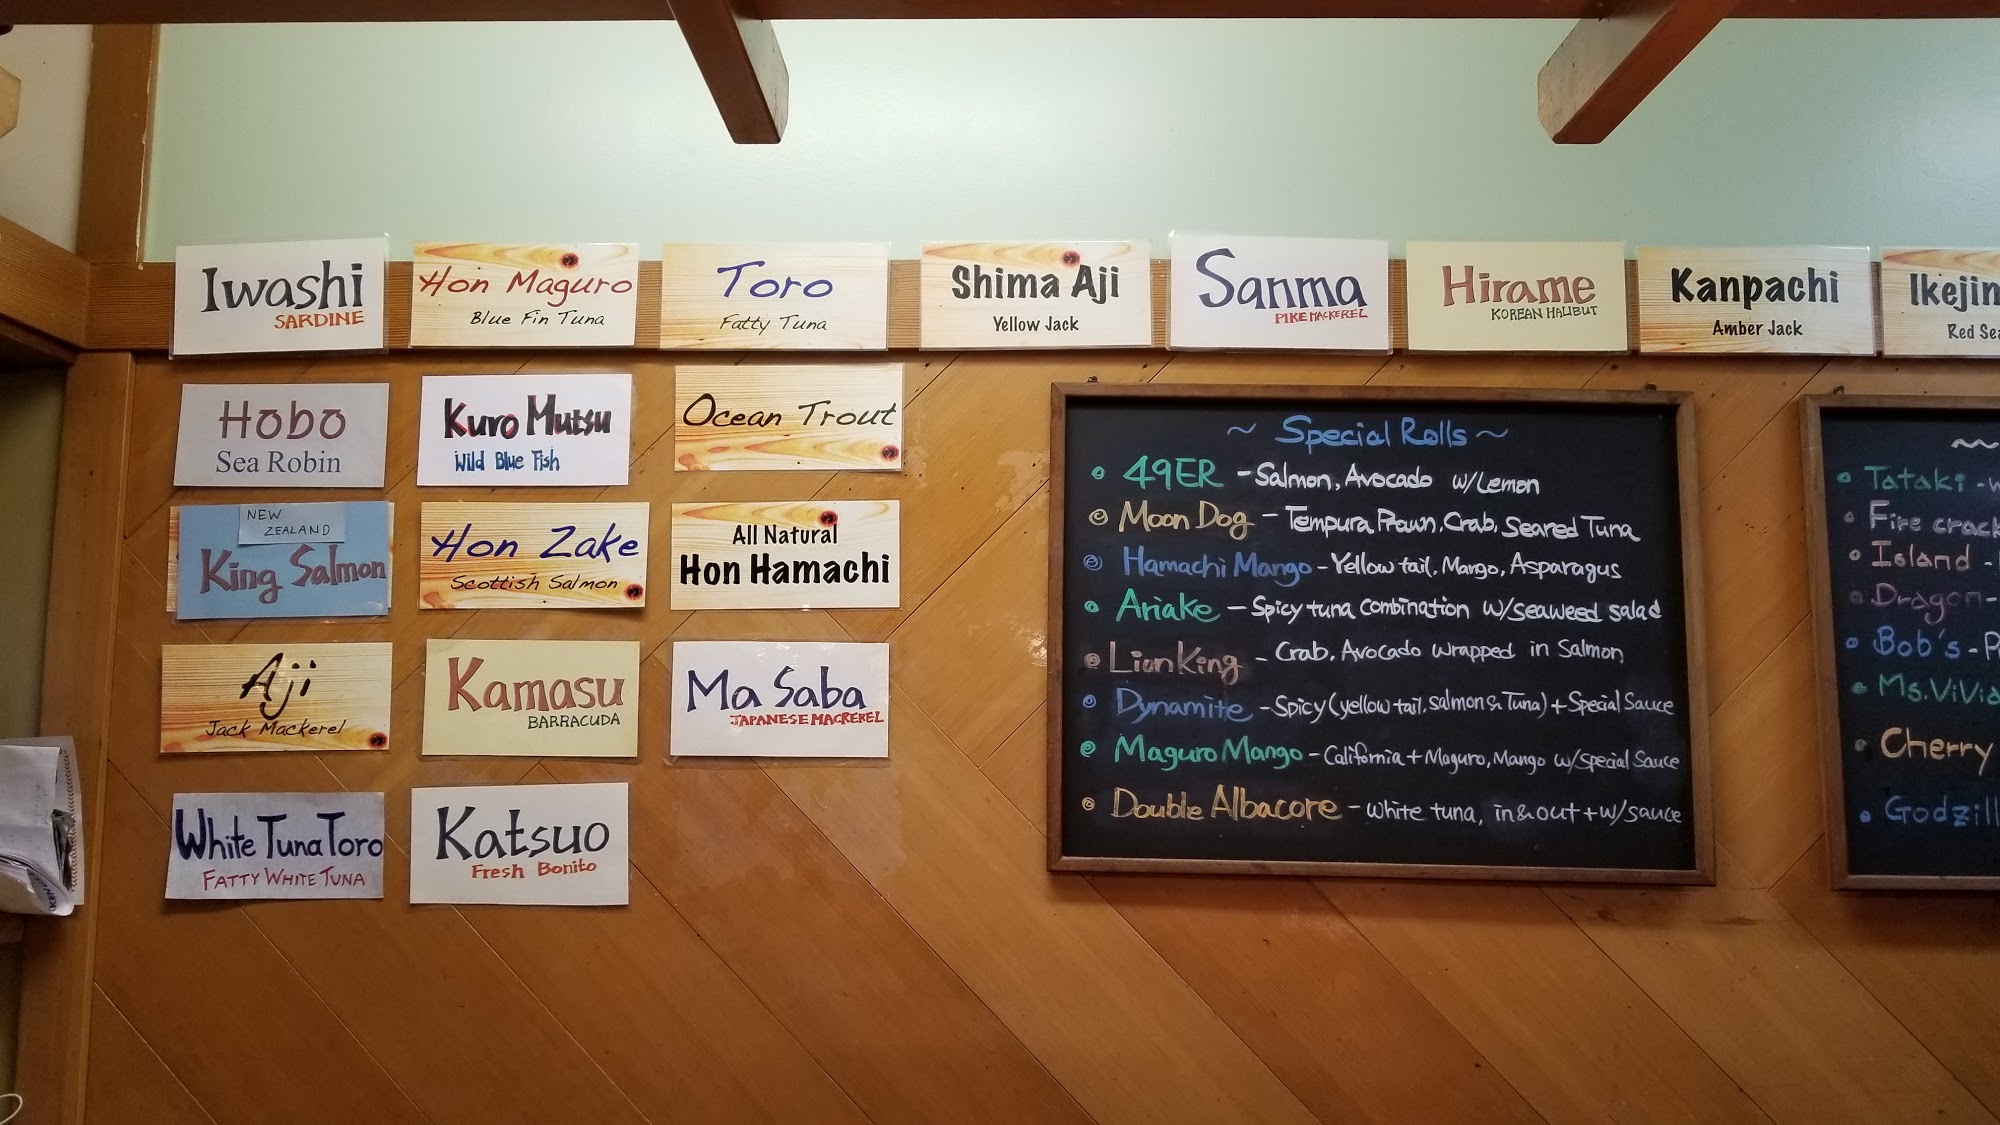 Iwashi
SARDINE
Hon Maguro
Blue Fin Tuna
Toro
Fatty Tuna
Shima Aji
Yellow Jack
Sanma
PIKE MACKEREL
Hirame
KOREAN HALIBUT
Kanpachi
Amber Jack
Ikejin
Red Sea
Hobo
Sea Robin
Kuro Mutsu
Wild Blue Fish
Ocean Trout
NEW
ZEALAND
King Salmon
Hon Zake
Scottish Salmon
All Natural
Hon Hamachi
Aji
Jack Mackerel
Kamasu
BARRACUDA
Ma Saba
JAPANESE MACKEREL
White Tuna Toro
FATTY WHITE TUNA
Katsuo
Fresh Bonito
~ Special Rolls ~
49ER - Salmon, Avocado w/Lemon
Moon Dog - Tempura Prawn, Crab, Seared Tuna
Hamachi Mango - Yellow tail, Mango, Asparagus
Ariake - Spicy tuna combination w/seaweed salad
Lion King - Crab, Avocado wrapped in Salmon
Dynamite - Spicy (yellow tail, salmon & Tuna) + Special Sauce
Maguro Mango - California + Maguro, Mango w/special sauce
Double Albacore - white tuna, in & out + w/sauce
Tataki - w
Fire crack
Island -
Dragon -
Bob's - P
Ms. ViVia
Cherry
Godzill